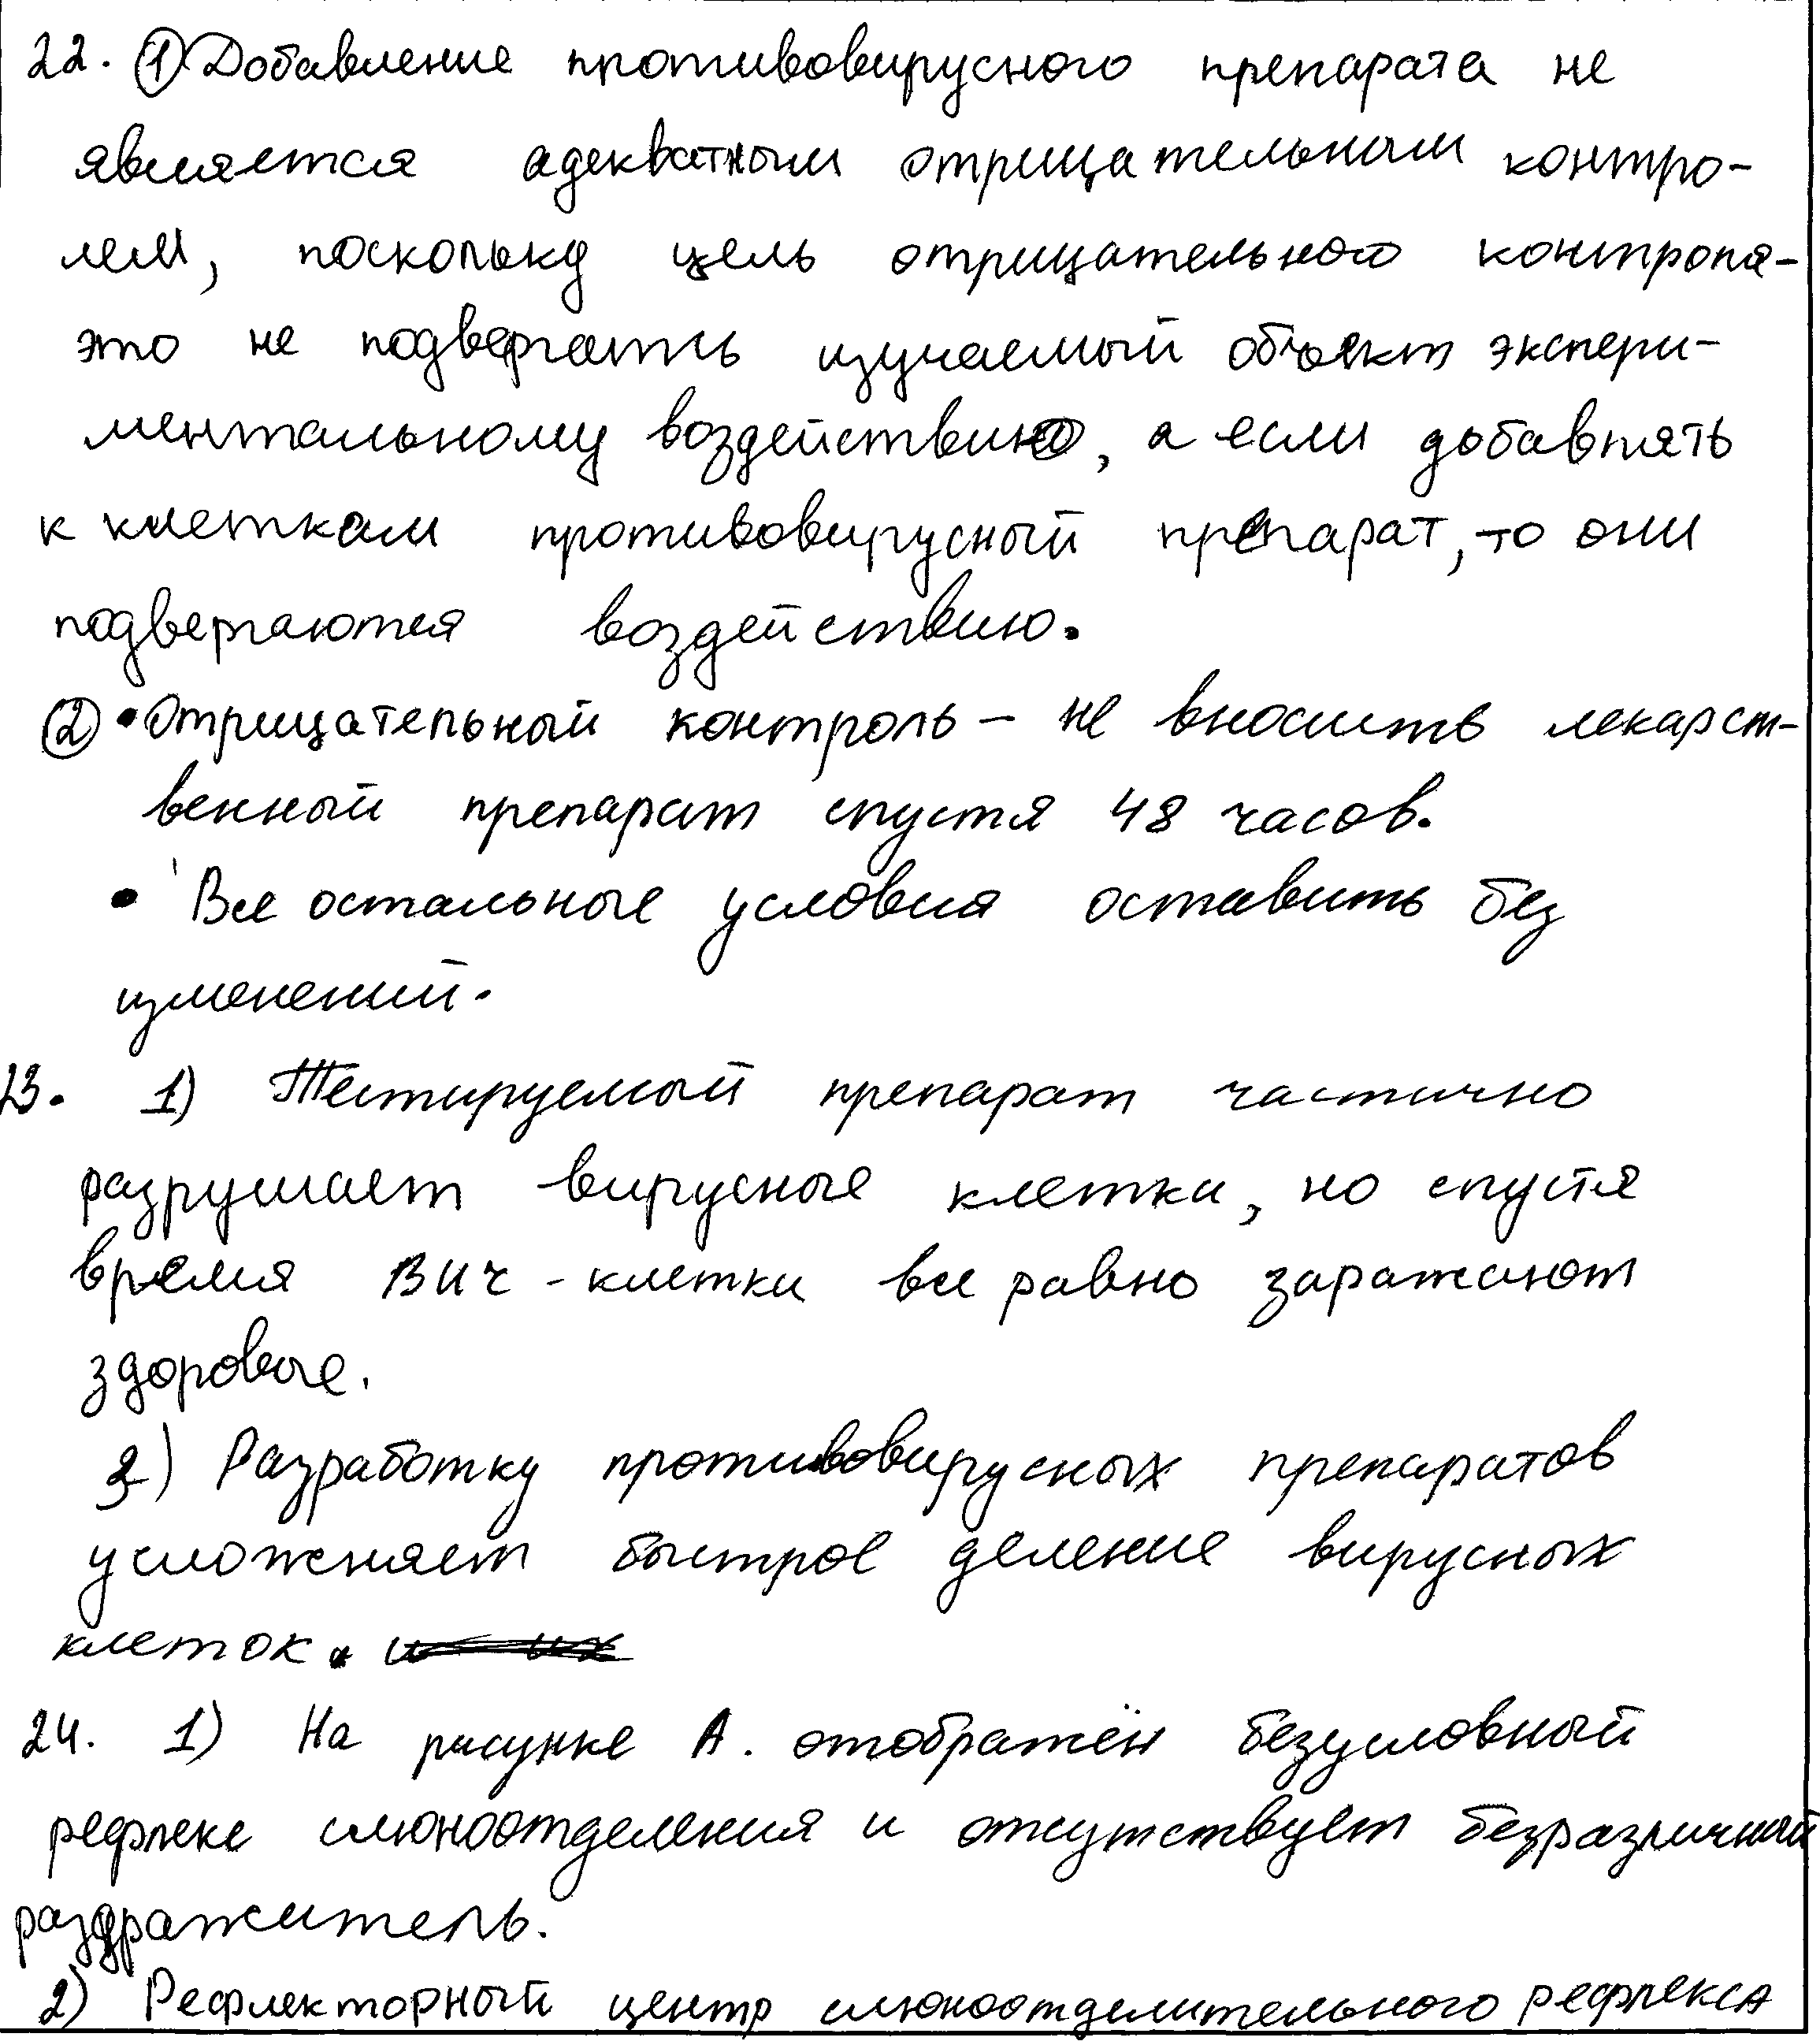 22. 1 Добавление противовирусного препарата не
является адекватным отрицательным контро-
лем, поскольку цель отрицательного контроля-
это не подвергать изучаемый объект экспери-
ментальному воздействию, а если добавлять
к клеткам противовирусный препарат, то они
подвергаются воздействию.
2 • Отрицательный контроль - не вносить лекарст-
венный препарат спустя 48 часов.
• Все остальные условия оставить без
изменений.
23. 1) Тестируемый препарат частично
разрушает вирусные клетки, но спустя
время ВИЧ - клетки все равно заражают
здоровые.
2) Разработку противовирусных препаратов
усложняет быстрое деление вирусных
клеток.
24. 1) На рисунке А. отображён безусловный
рефлекс слюноотделения и отсутствует безразличный
раздражитель.
2) Рефлекторный центр слюноотделительного рефлекса